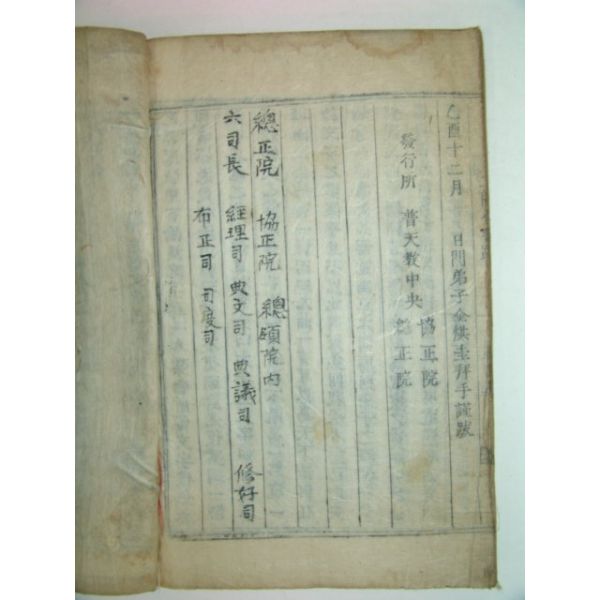 乙酉十二月 日門弟子金棋圭拜手謹跋
發行所 普天敎中央 協正院
總正院
總正院 協正院 總領院內
六司長 經理司 典文司 典議司 修好司
布正司 司度司